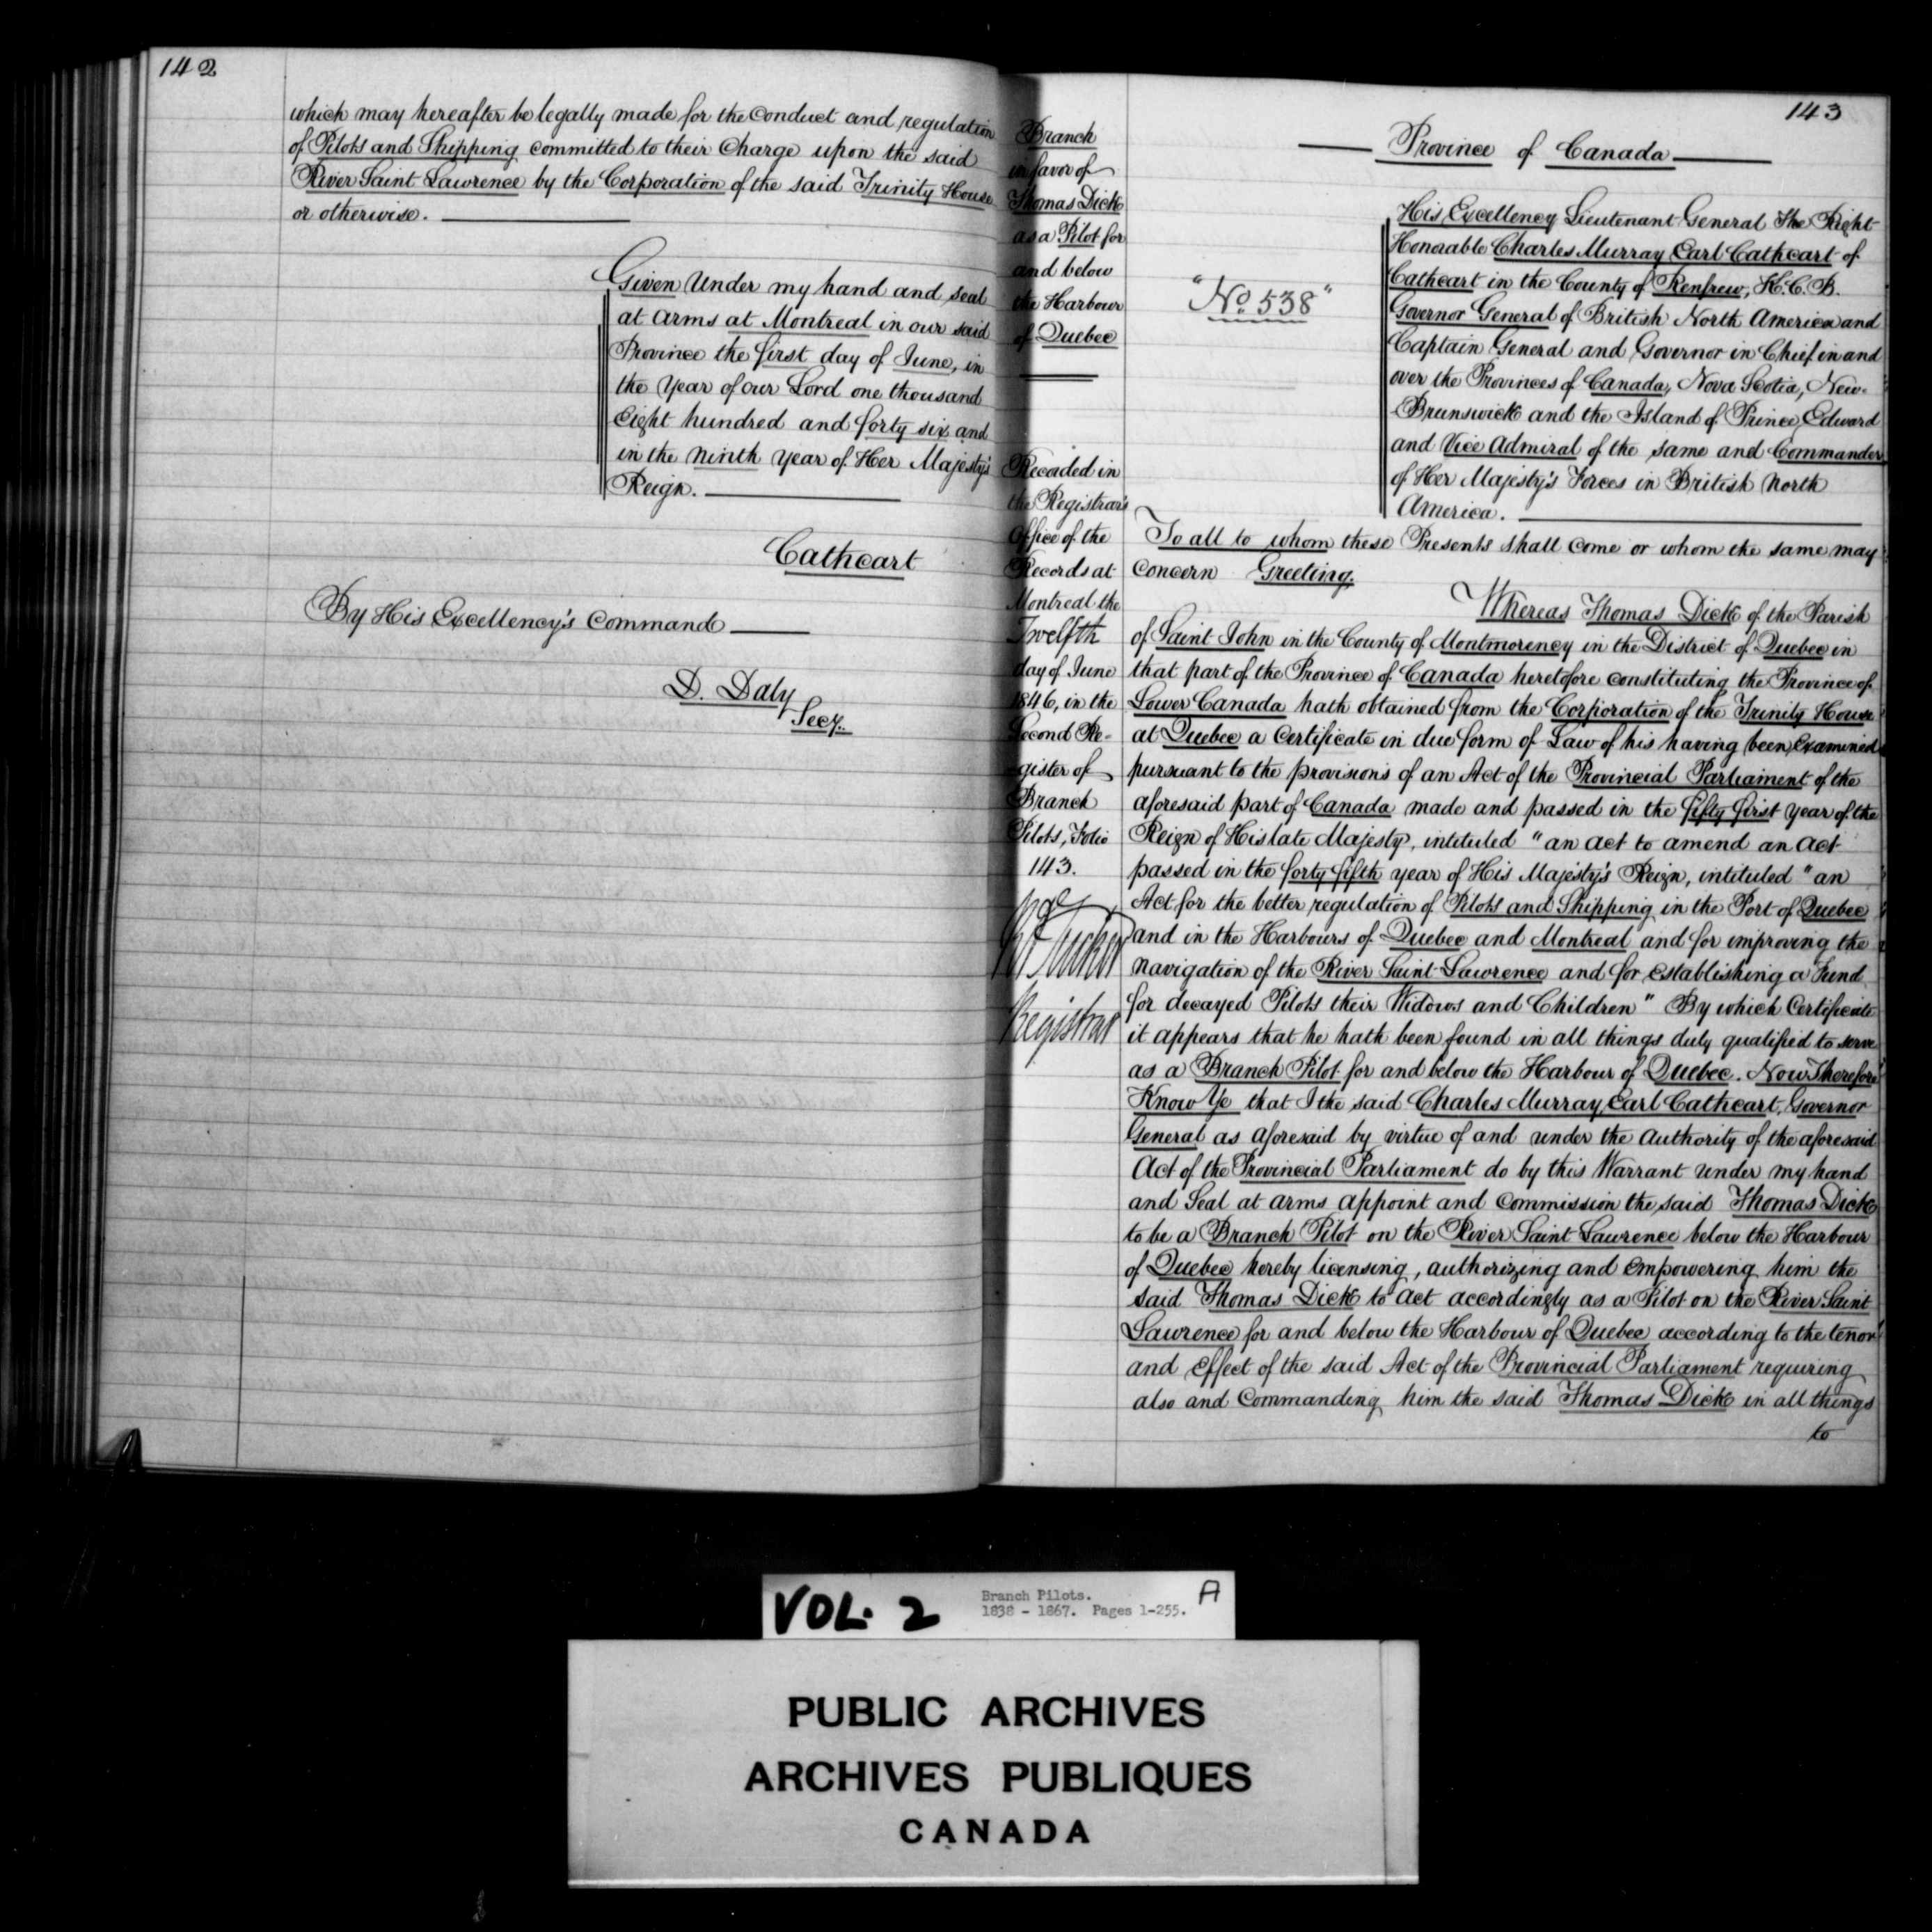 142
which may hereafter be legally made for the conduct and regulation
of Pilots and Shipping committed to their Charge upon the said
River Saint Lawrence by the Corporation of the said Trinity House
or otherwise.
Given Under my hand and seal
at arms at Montreal in our said
Province the first day of June, in
the Year of our Lord one thousand
Eight hundred and forty six and
in the ninth year of Her Majesty's
Reign.
Cathcart
By His Excellency's Command
D. Daly
Secy.
143
Branch
in favor of
Thomas Dick
as a Pilot for
and below
the Harbour
of Quebec
Recorded in
the Registrar's
Office of the
Records at
Montreal the
Twelfth
day of June
1846, in the
Second Re-
gister of
Branch
Pilots, Folio
143.
Tucker
Registrar
Province of Canada
"No. 538"
His Excellency Lieutenant General The Right
Honorable Charles Murray Earl Cathcart of
Cathcart in the County of Renfrew, K.C.B.
Governor General of British North America and
Captain General and Governor in Chief in and
over the Provinces of Canada, Nova Scotia, New-
Brunswick and the Island of Prince Edward
and Vice Admiral of the same and Commander
of Her Majesty's Forces in British North
America.
To all to whom these Presents shall come or whom the same may
concern Greeting.
Whereas Thomas Dick of the Parish
of Saint John in the County of Montmorency in the District of Quebec in
that part of the Province of Canada heretofore constituting the Province of
Lower Canada hath obtained from the Corporation of the Trinity House
at Quebec a Certificate in due form of Law of his having been Examined
pursuant to the provisions of an Act of the Provincial Parliament of the
aforesaid part of Canada made and passed in the fifty first year of the
Reign of His late Majesty, intituled "an act to amend an Act
passed in the forty fifth year of His Majesty's Reign, intituled "an
Act for the better regulation of Pilots and Shipping in the Port of Quebec
and in the Harbours of Quebec and Montreal and for improving the
navigation of the River Saint Lawrence and for Establishing a Fund
for decayed Pilots their Widows and Children" By which Certificate
it appears that he hath been found in all things duly qualified to serve
as a Branch Pilot for and below the Harbour of Quebec. Now Therefore
Know Ye that I the said Charles Murray Earl Cathcart, Governor
General as aforesaid by virtue of and under the authority of the aforesaid
Act of the Provincial Parliament do by this Warrant under my hand
and Seal at arms appoint and Commission the said Thomas Dick
to be a Branch Pilot on the River Saint Lawrence below the Harbour
of Quebec hereby licensing, authorizing and Empowering him the
said Thomas Dick to act accordingly as a Pilot on the River Saint
Lawrence for and below the Harbour of Quebec according to the tenor
and Effect of the said Act of the Provincial Parliament requiring
also and Commanding him the said Thomas Dick in all things
to
VOL. 2
Branch Pilots.
1838 - 1867. Pages 1-255.
A
PUBLIC ARCHIVES
ARCHIVES PUBLIQUES
CANADA